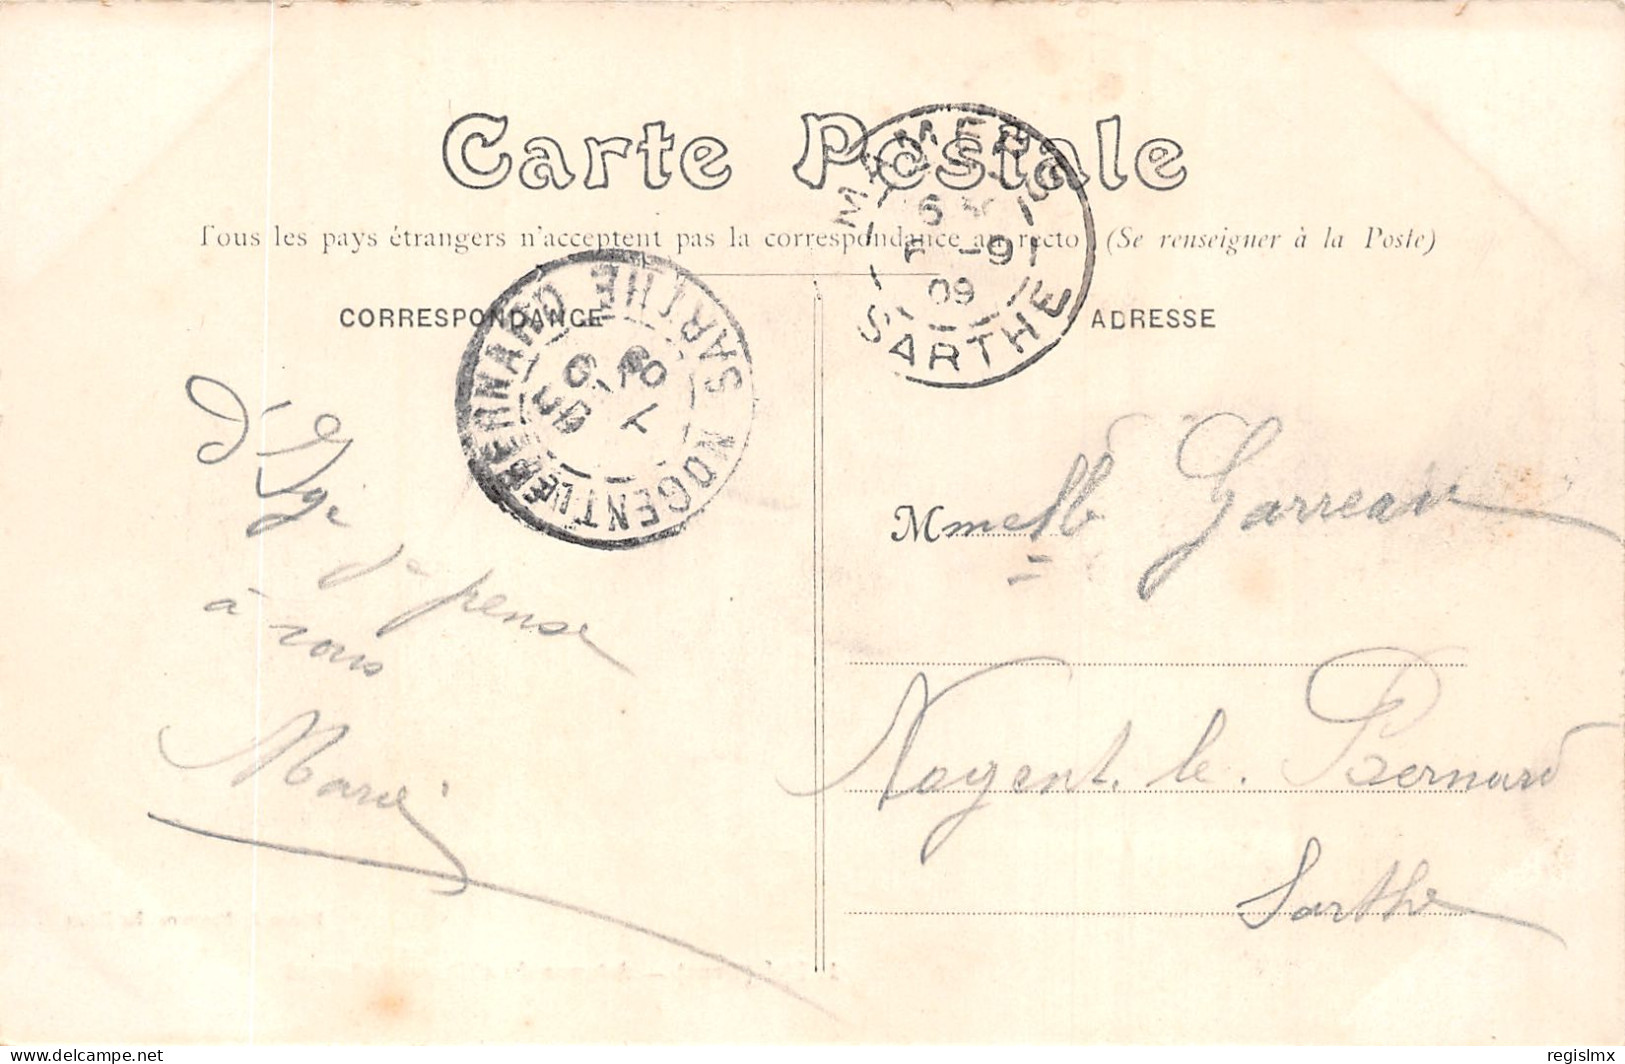 Carte Postale
Tous les pays étrangers n'acceptent pas la correspondance au recto (Se renseigner à la Poste)
CORRESPONDANCE
ADRESSE
MAMERS
6
-9
09
SARTHE
NOGENT LE BERNARD SARTHE
7 -9
09
d'Igé
je pense
à vous
Marie
Mmelle Garreau
Nogent. le. Bernard
Sarthe
delcampe.net
regislmx